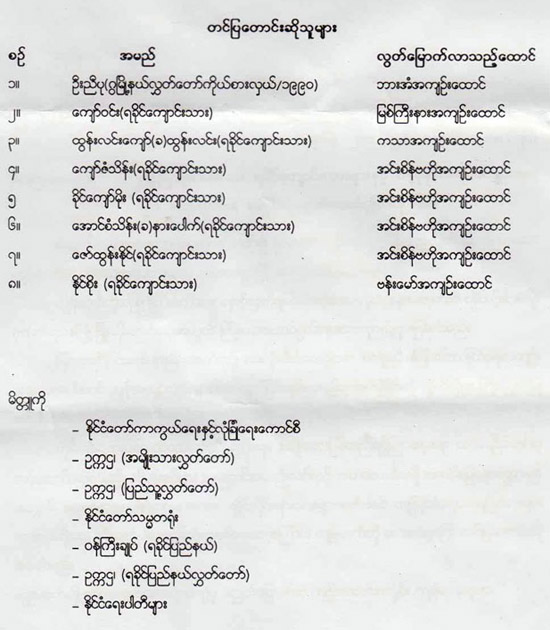 တင်ပြတောင်းဆိုသူများ
စဉ် အမည် လွတ်မြောက်လာသည့်ထောင်
၁။ ဦးညီပု(ဂွမြို့နယ်လွှတ်တော်ကိုယ်စားလှယ်/၁၉၉၀) ဘားအံအကျဉ်းထောင်
၂။ ကျော်ဝင်း(ရခိုင်ကျောင်းသား) မြစ်ကြီးနားအကျဉ်းထောင်
၃။ ထွန်းလင်းကျော်(ခ)ထွန်းလင်း(ရခိုင်ကျောင်းသား) ကသာအကျဉ်းထောင်
၄။ ကျော်ဇံသိန်း(ရခိုင်ကျောင်းသား) အင်းစိန်ဗဟိုအကျဉ်းထောင်
၅ ခိုင်ကျော်မိုး (ရခိုင်ကျောင်းသား) အင်းစိန်ဗဟိုအကျဉ်းထောင်
၆။ အောင်စံသိန်း(ခ)နားပေါက်(ရခိုင်ကျောင်းသား) အင်းစိန်ဗဟိုအကျဉ်းထောင်
၇။ ဇော်ထွန်းနိုင်(ရခိုင်ကျောင်းသား) အင်းစိန်ဗဟိုအကျဉ်းထောင်
၈။ နိုင်စိုး (ရခိုင်ကျောင်းသား) ဗန်းမော်အကျဉ်းထောင်
မိတ္တူကို
– နိုင်ငံတော်ကာကွယ်ရေးနှင့်လုံခြုံရေးကောင်စီ
– ဥက္ကဌ၊ (အမျိုးသားလွှတ်တော်)
– ဥက္ကဌ၊ (ပြည်သူ့လွှတ်တော်)
– နိုင်ငံတော်သမ္မတရုံး
– ဝန်ကြီးချုပ် (ရခိုင်ပြည်နယ်)
– ဥက္ကဌ၊ (ရခိုင်ပြည်နယ်လွှတ်တော်)
– နိုင်ငံရေးပါတီများ